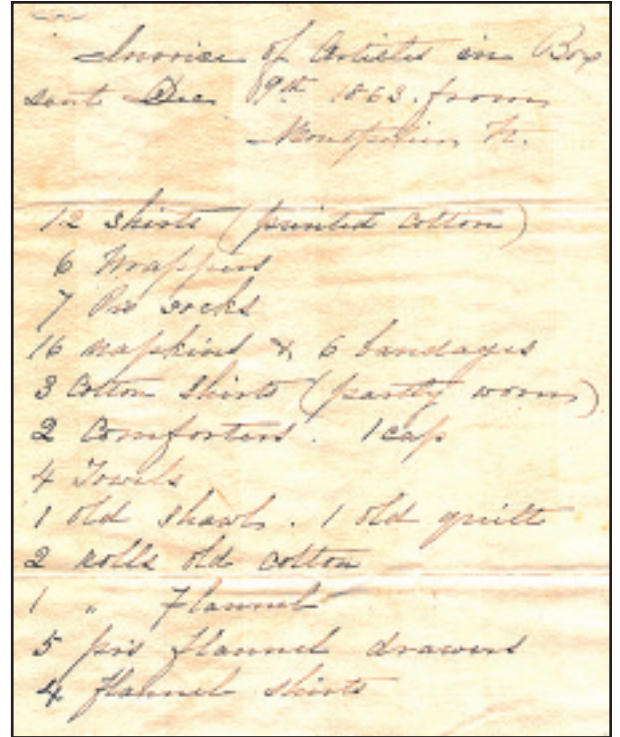 Invoice of Articles in Box
sent Dec 9th 1863. from
Montpelier Vt.
12 Shirts (printed cotton)
6 Wrappers
7 Prs socks
16 napkins & 6 bandages
3 Cotton Shirts (partly worn)
2 Comforters. 1 cap
4 Towels
1 old shawl. 1 old quilt
2 rolls old cotton
1 " Flannel
5 prs flannel drawers
4 flannel shirts